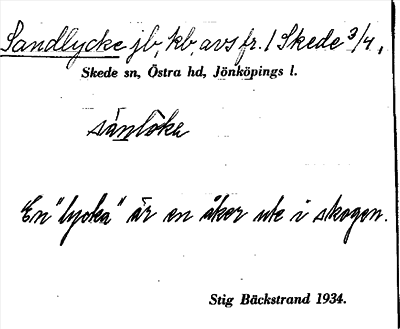 Sandlycke jb, kb, avs. fr. 1 Skede 3/4,
Skede sn, Östra hd, Jönköpings l.
sánlöka
En "lycka" är en åker ute i skogen.
Stig Bäckstrand 1934.